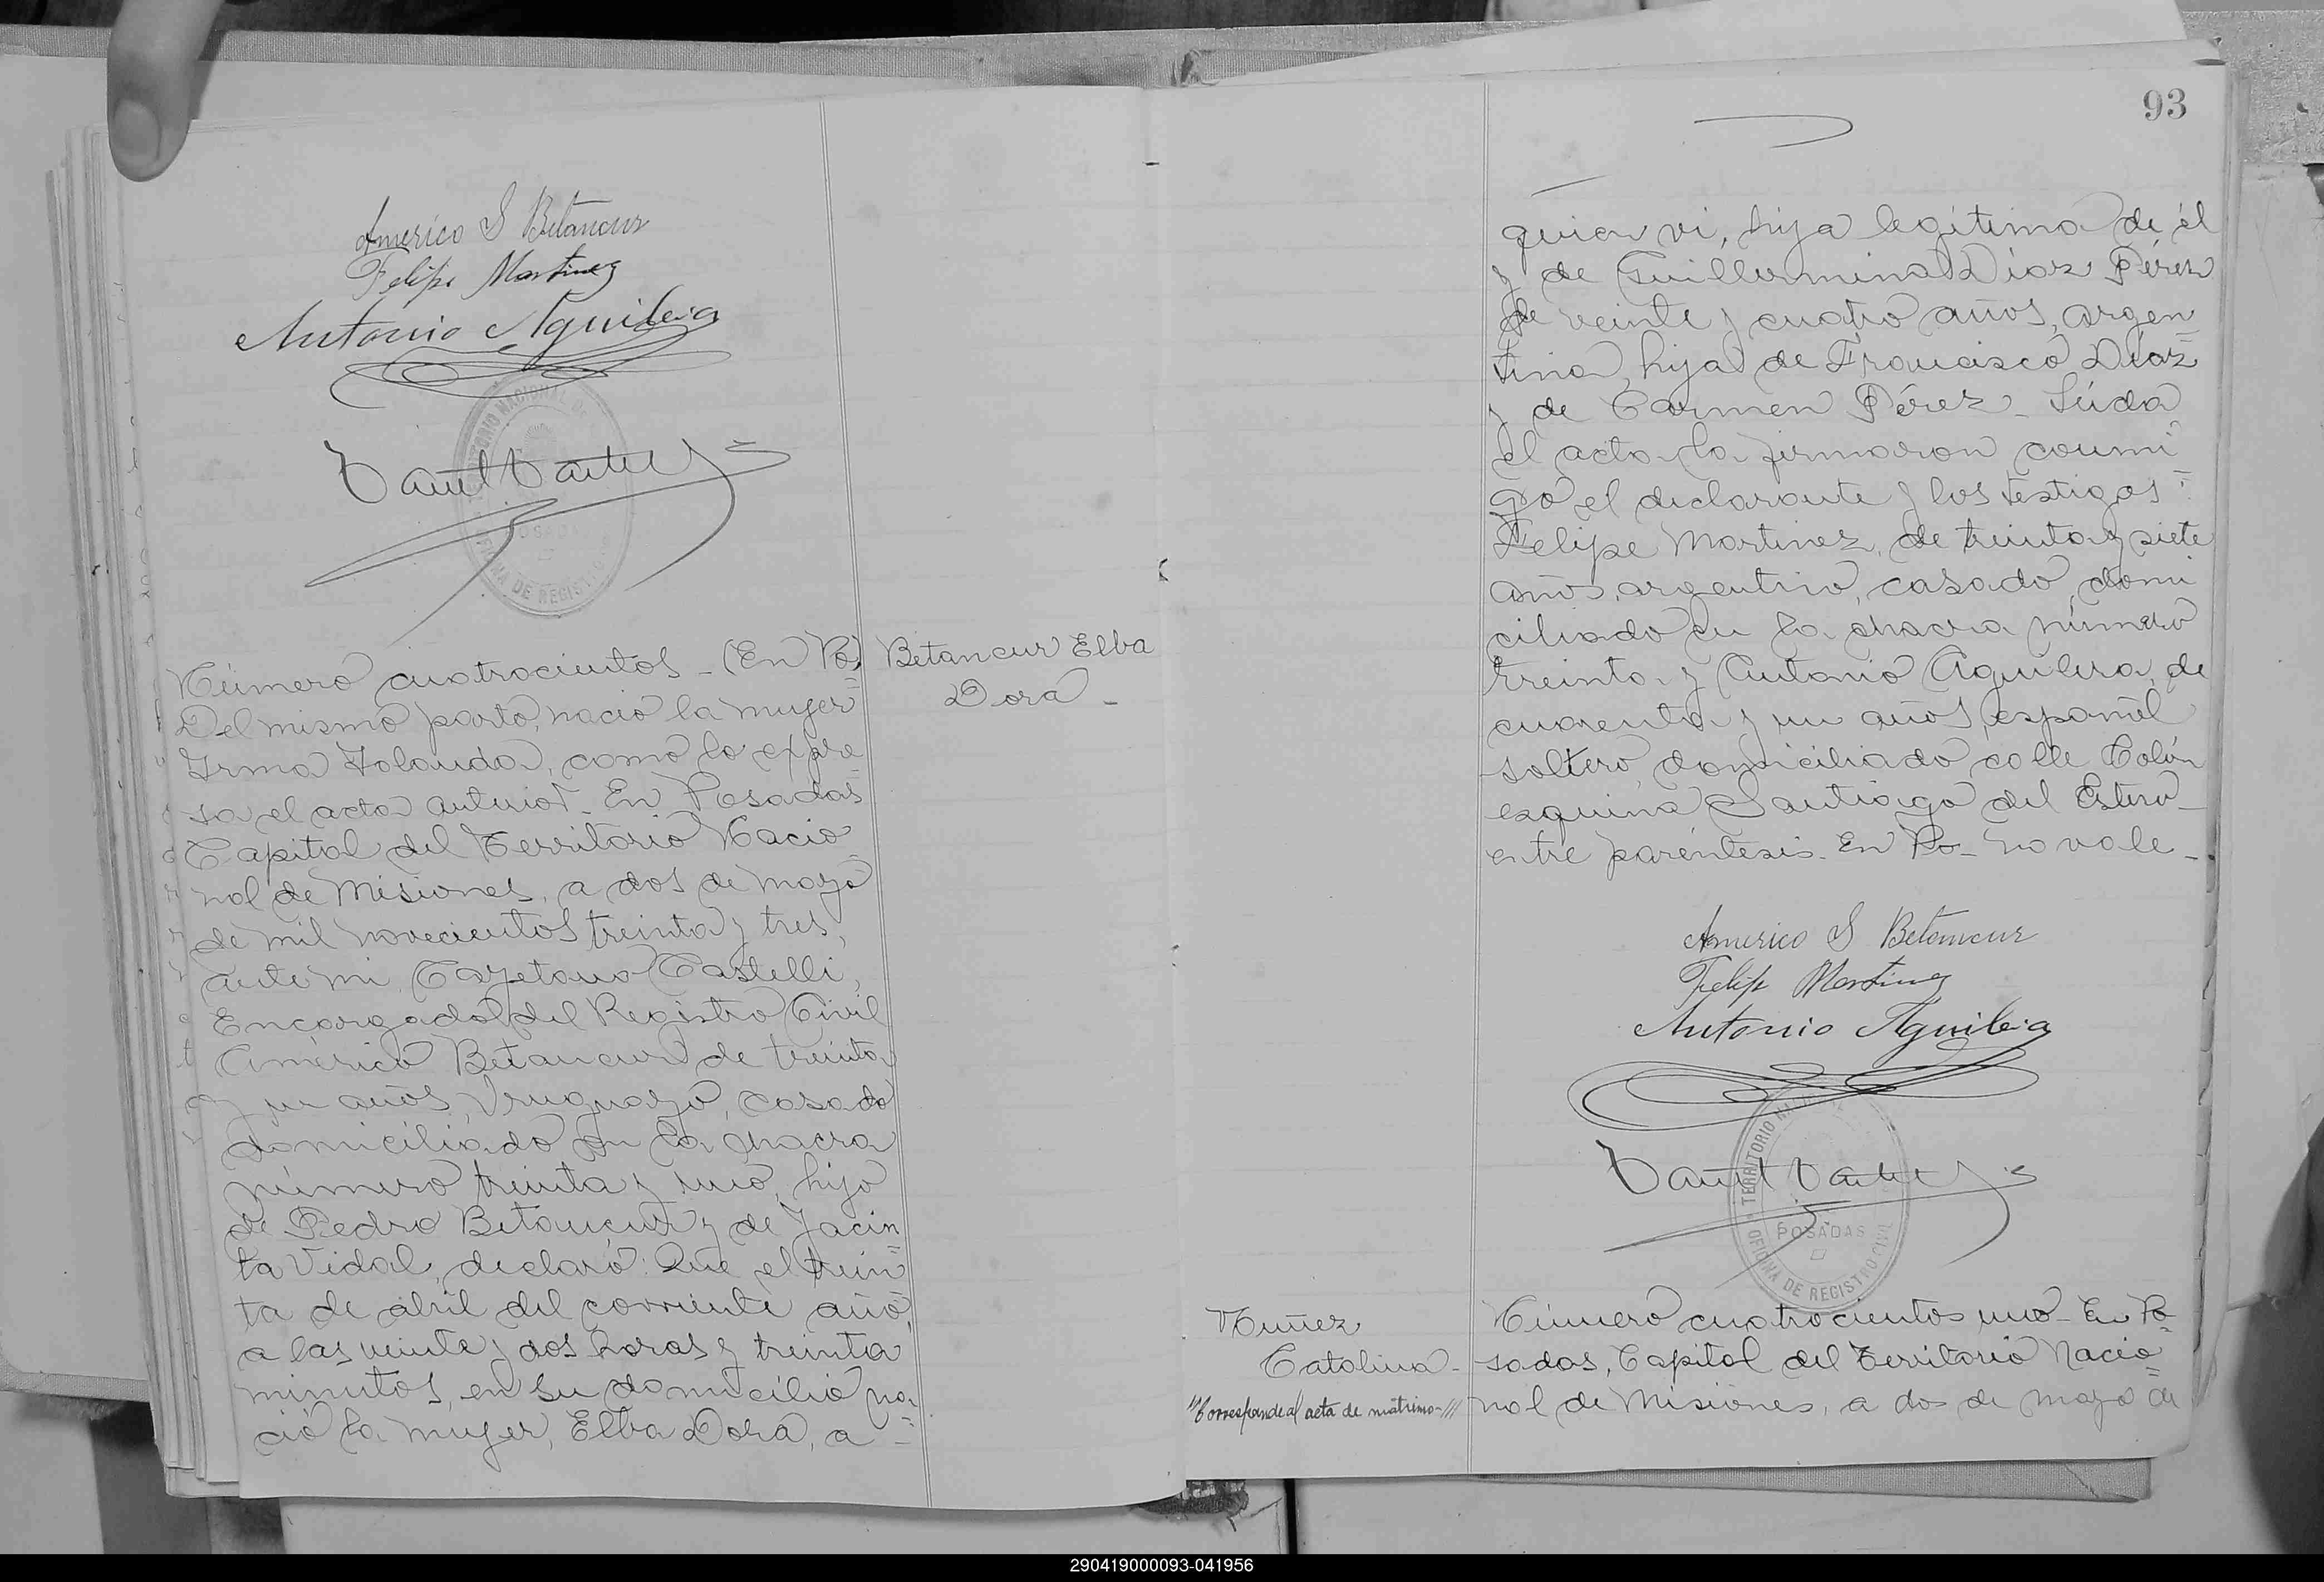 Americo S Betancur
Felipe Martinez
Antonio Aguilera
TERRITORIO NACIONAL DE
POSADAS
OFICINA DE REGISTRO
Número cuatrocientos - (En Po)
Betancur Elba
Dora -
Del mismo parto, nació la mujer
Irma Yolanda, como lo expre=
sa el acta anterior - En Posadas
Capital del Territorio Nacio=
nal de Misiones, a dos de mayo
de mil novecientos treinta y tres,
ante mi, Cayetano Castelli,
Encargado del Registro Civil
Américo Betancur de treinta
y un años, Uruguayo, casado
domiciliado en la chacra
número treinta y uno, hijo
de Pedro Betancur y de Jacin=
ta Vidal, declaró: Que el trein=
ta de abril del corriente año,
a las veinte y dos horas y treinta
minutos, en su domicilio na=
ció la mujer, Elba Dora, a=
93
quien vi, hija legítima de él
y de Guillermina Diaz Pérez
de veinte y cuatro años, argen=
tina, hija de Francisco Diaz
y de Carmen Pérez - Leida
el acta la firmaron conmi=
go el declarante y los testigos:
Felipe Martinez, de treinta y siete
años, argentino, casado, domi
ciliado en la chacra número
treinta y Antonio Aguilera, de
cuarenta y un años, español
soltero, domiciliado calle Colón
esquina Santiago del Estero -
entre paréntesis - En Po - no vale -
Americo S Betancur
Felip Martinez
Antonio Aguilera
TERRITORIO
POSADAS
OFICINA DE REGISTRO CIVIL
Nuñez
Catalina -
"Corresponde al acta de matrimo-///
Número cuatrocientos uno - En Po=
sadas, Capital del Territorio Nacio=
nal de Misiones, a dos de mayo de
290419000093-041956